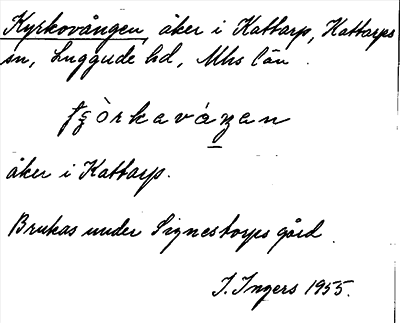 Kyrkovången, åker i Kattarp, Kattarps
sn, Luggude hd, Mhs län.
åker i Kattarp.
Brukas under Signestorps gård.
I. Ingers 1955.